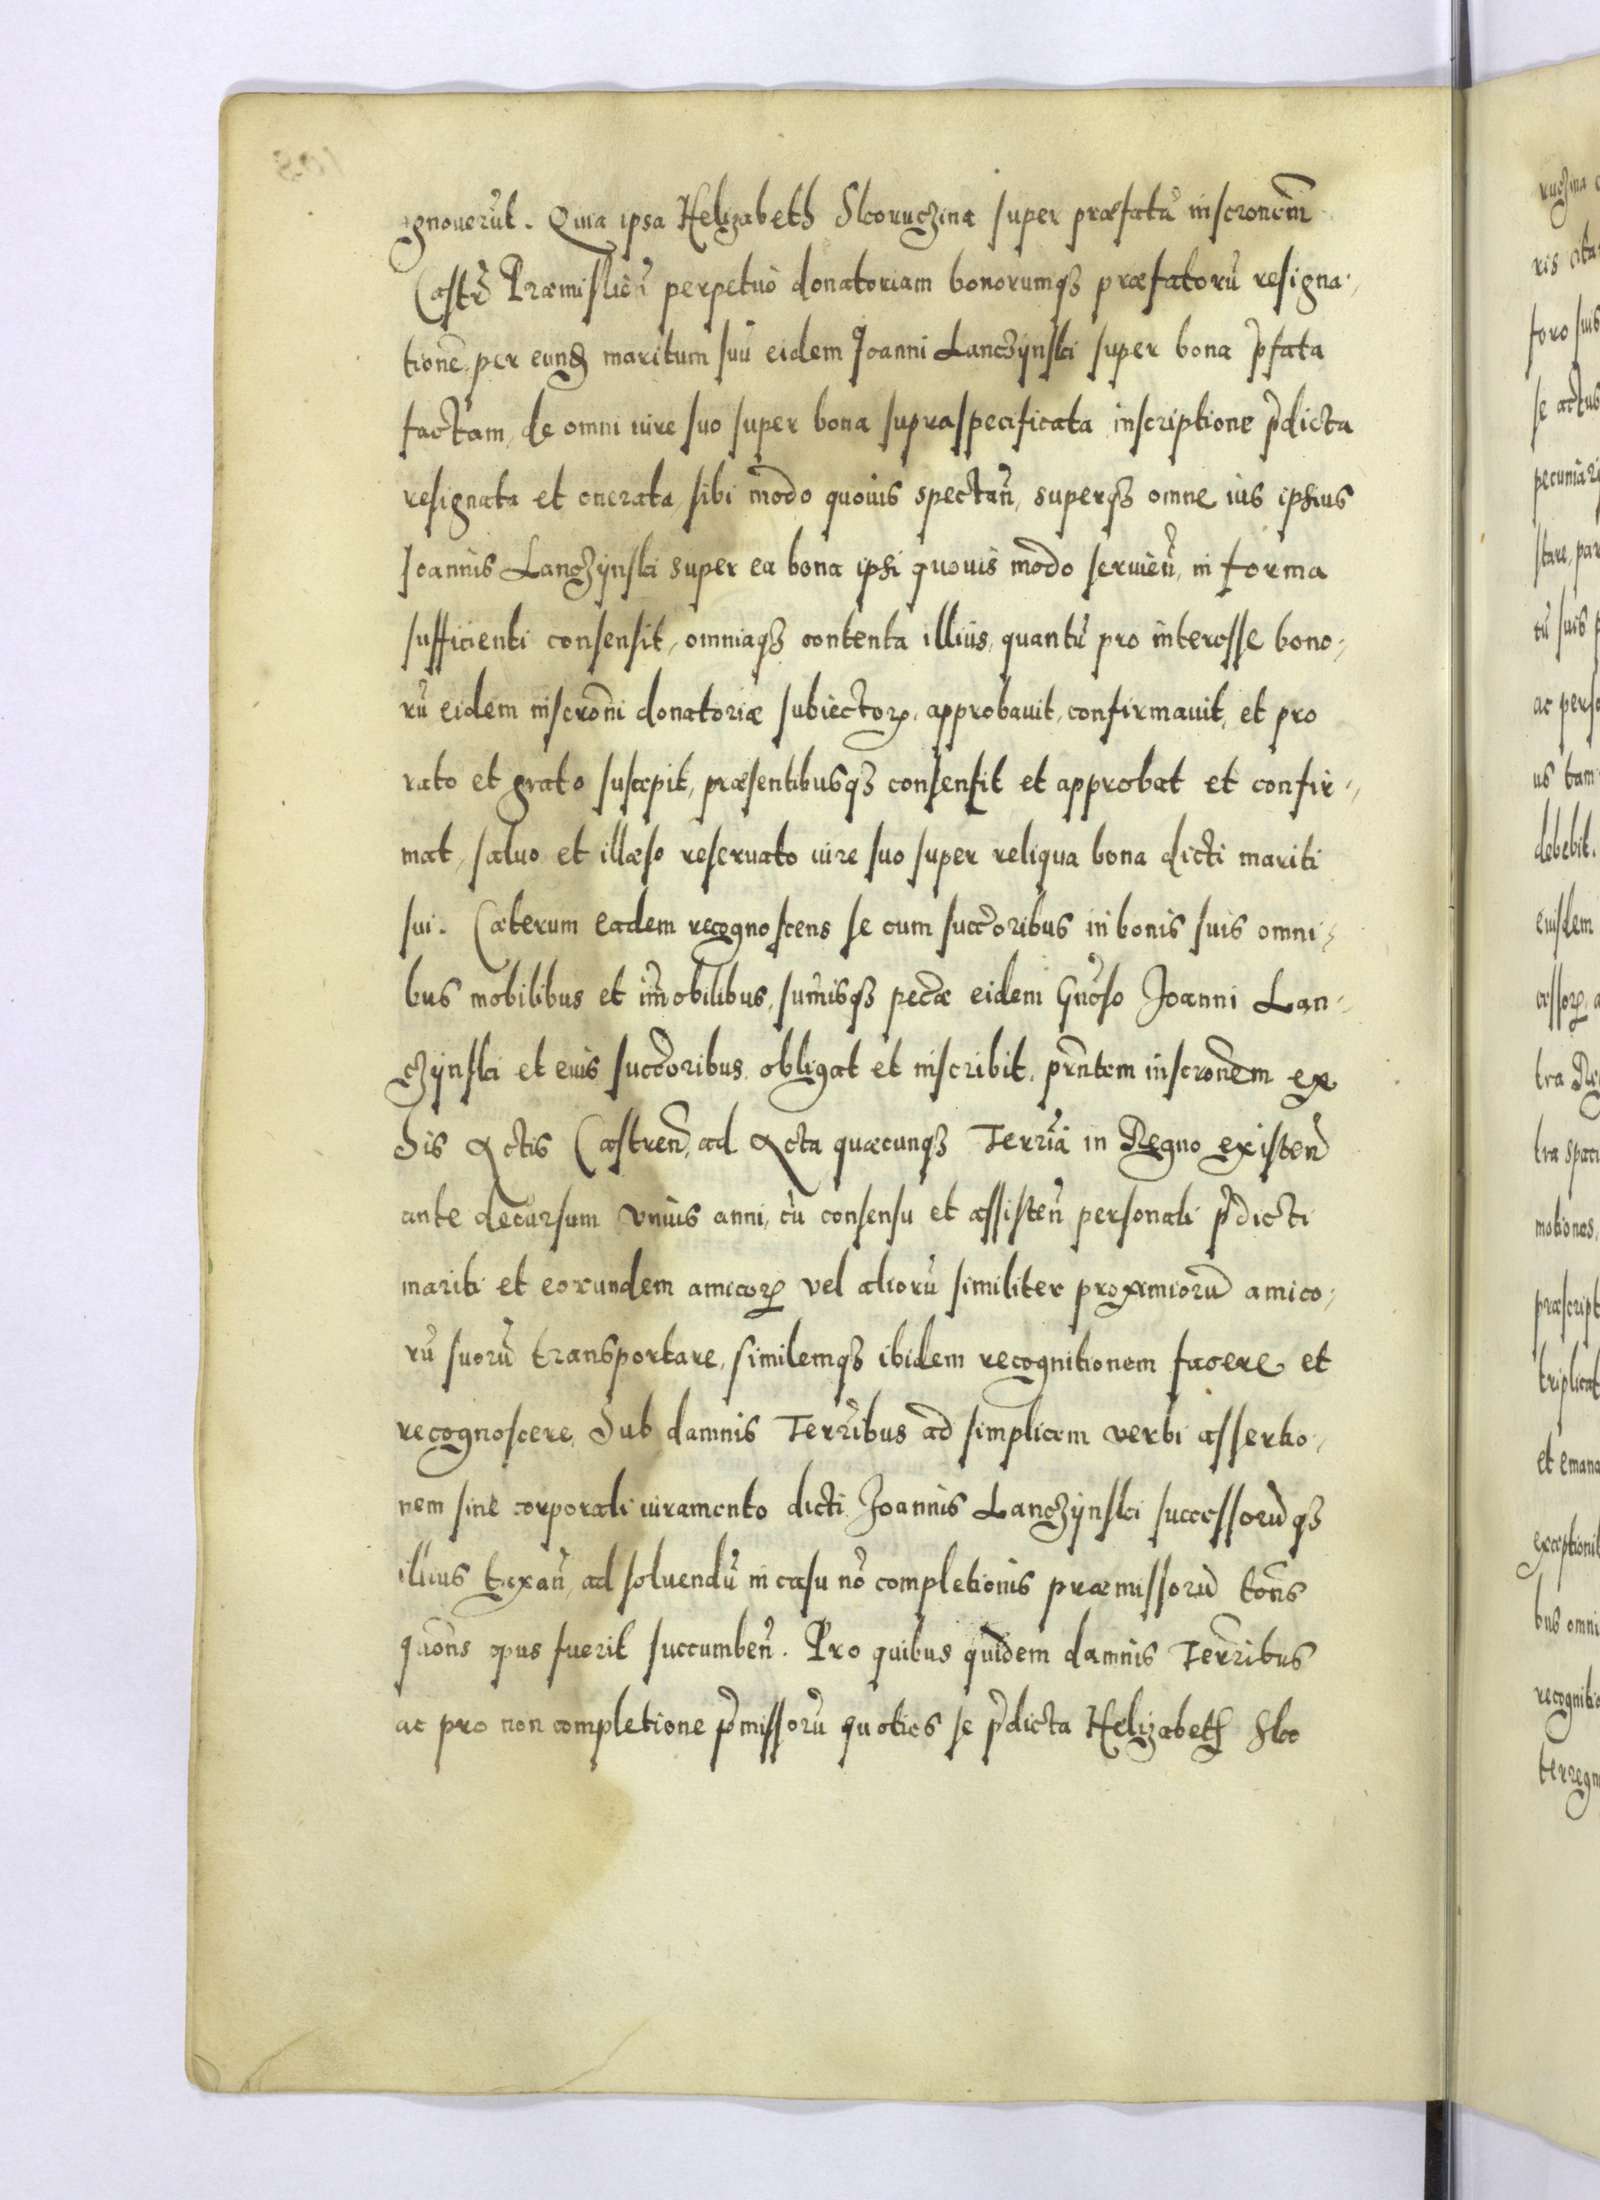 gnouerūt. Quia ipsa Helizabeth Skoruczina super præfatā inscronem̄
Castrē Præmislien̄ perpetuò donatoriam bonorumqȝ præfatorū resigna-
tionē per eund̄ maritum suū eidem Joanni Lanczynski super bona p̄fata
factam, de omni iure suo super bona supraspecificata inscriptione p̄dicta
resignata et onerata sibi mōdo quouis spectan̄, superqȝ omne ius ipsius
Joannis Lanczynski super ea bona ipsi quouis mōdo seruien̄, in forma
sufficienti consensit, omniaqȝ contenta illius, quantū pro interesse bono-
rū eidem inscrōni donatoriæ subiectorꝝ, approbauit, confirmauit, et pro
rato et grato suscepit, præsentibusqȝ consentit et approbat et confir-
mat, saluo et illæso reseruato iure suo super reliqua bona dicti mariti
sui. Cæterum eadem recognoscens se cum succ̄oribus in bonis suis omni-
bus mobilibus et im̄obilibus, sum̄isqȝ pec̄æ eidem Gn̄oso Joanni Lan-
czynski et eius succ̄oribus obligat et inscribit, prn̄tem inscron̄em ex
his Actis Castren̄, ad Acta quæcunqȝ Terrīa in Regno existen̄
ante decursum vnius anni, cū consensu et assisten̄ personali p̄dicti
mariti et eorundem amicorꝝ vel aliorū similiter proximiorū amico-
rū suorū transportare, similemqȝ ibidem recognitionem facere et
recognoscere, Sub damnis Terr̄ibus ad simplicem verbi assertio-
nem sine corporali iuramento dicti Joannis Lanczynski successorūqȝ
illius taxan̄, ad soluendū in casu nō completionis præmissorū ton̄s
quon̄s opus fuerit succumben̄. Pro quibus quidem damnis Terr̄ibus
ac pro non completione p̄missorū quoties se p̄dicta Helizabeth Sko